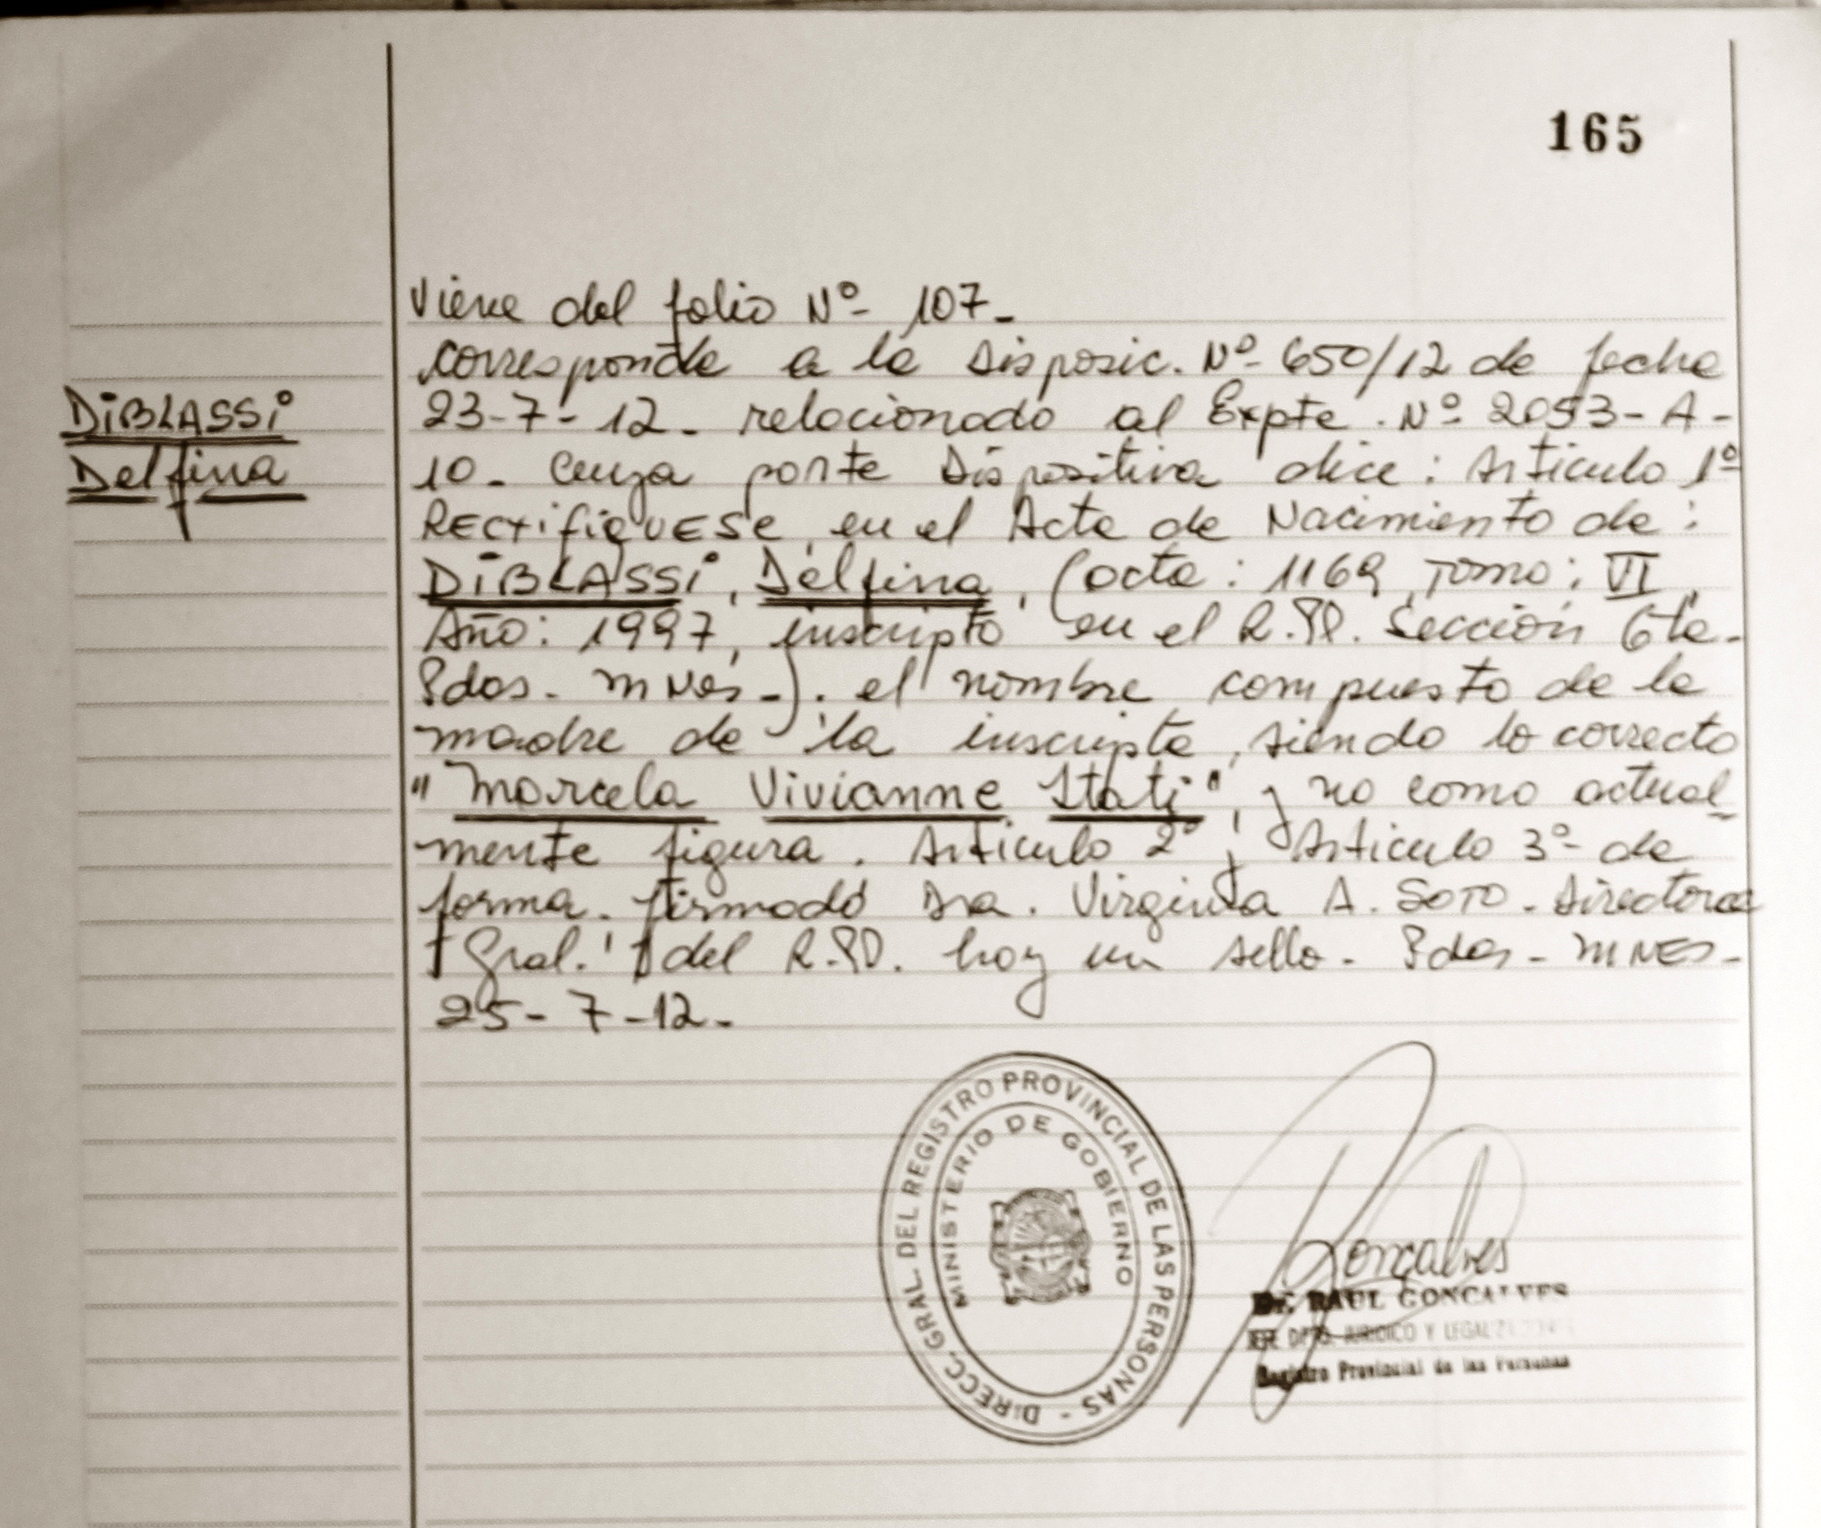 165
Viene del folio Nº- 107-
corresponde a la Disposic. Nº- 650/12 de fecha
DiBLASSi
23-7-12- relacionado al Expte. Nº- 2053-A-
Delfina
10- Cuya parte Dispositiva dice: Artículo 1º
RECtifiqUESE, en el Acta de Nacimiento de:
DiBLASSi, Delfina, (acta: 1169, Tomo: VI,
Año: 1997, inscripto en el R.PP. Sección 6ta-
Pdas- mNes-). el nombre compuesto de la
madre de la inscripta, siendo lo correcto
"Marcela Vivianne Stati", y no como actual-
mente figura. Artículo 2º y Artículo 3º- de
forma. firmado Dra. Virginia A. SOTO- Directora
Gral. del R.PP. hay un sello- Pdas- mNES-
25-7-12-
DIRECC. GRAL. DEL REGISTRO PROVINCIAL DE LAS PERSONAS -
MINISTERIO DE GOBIERNO
Goncalves
Dr. RAUL GONCALVES
JEFE DPTO. JURIDICO Y
Registro Provincial de las Personas